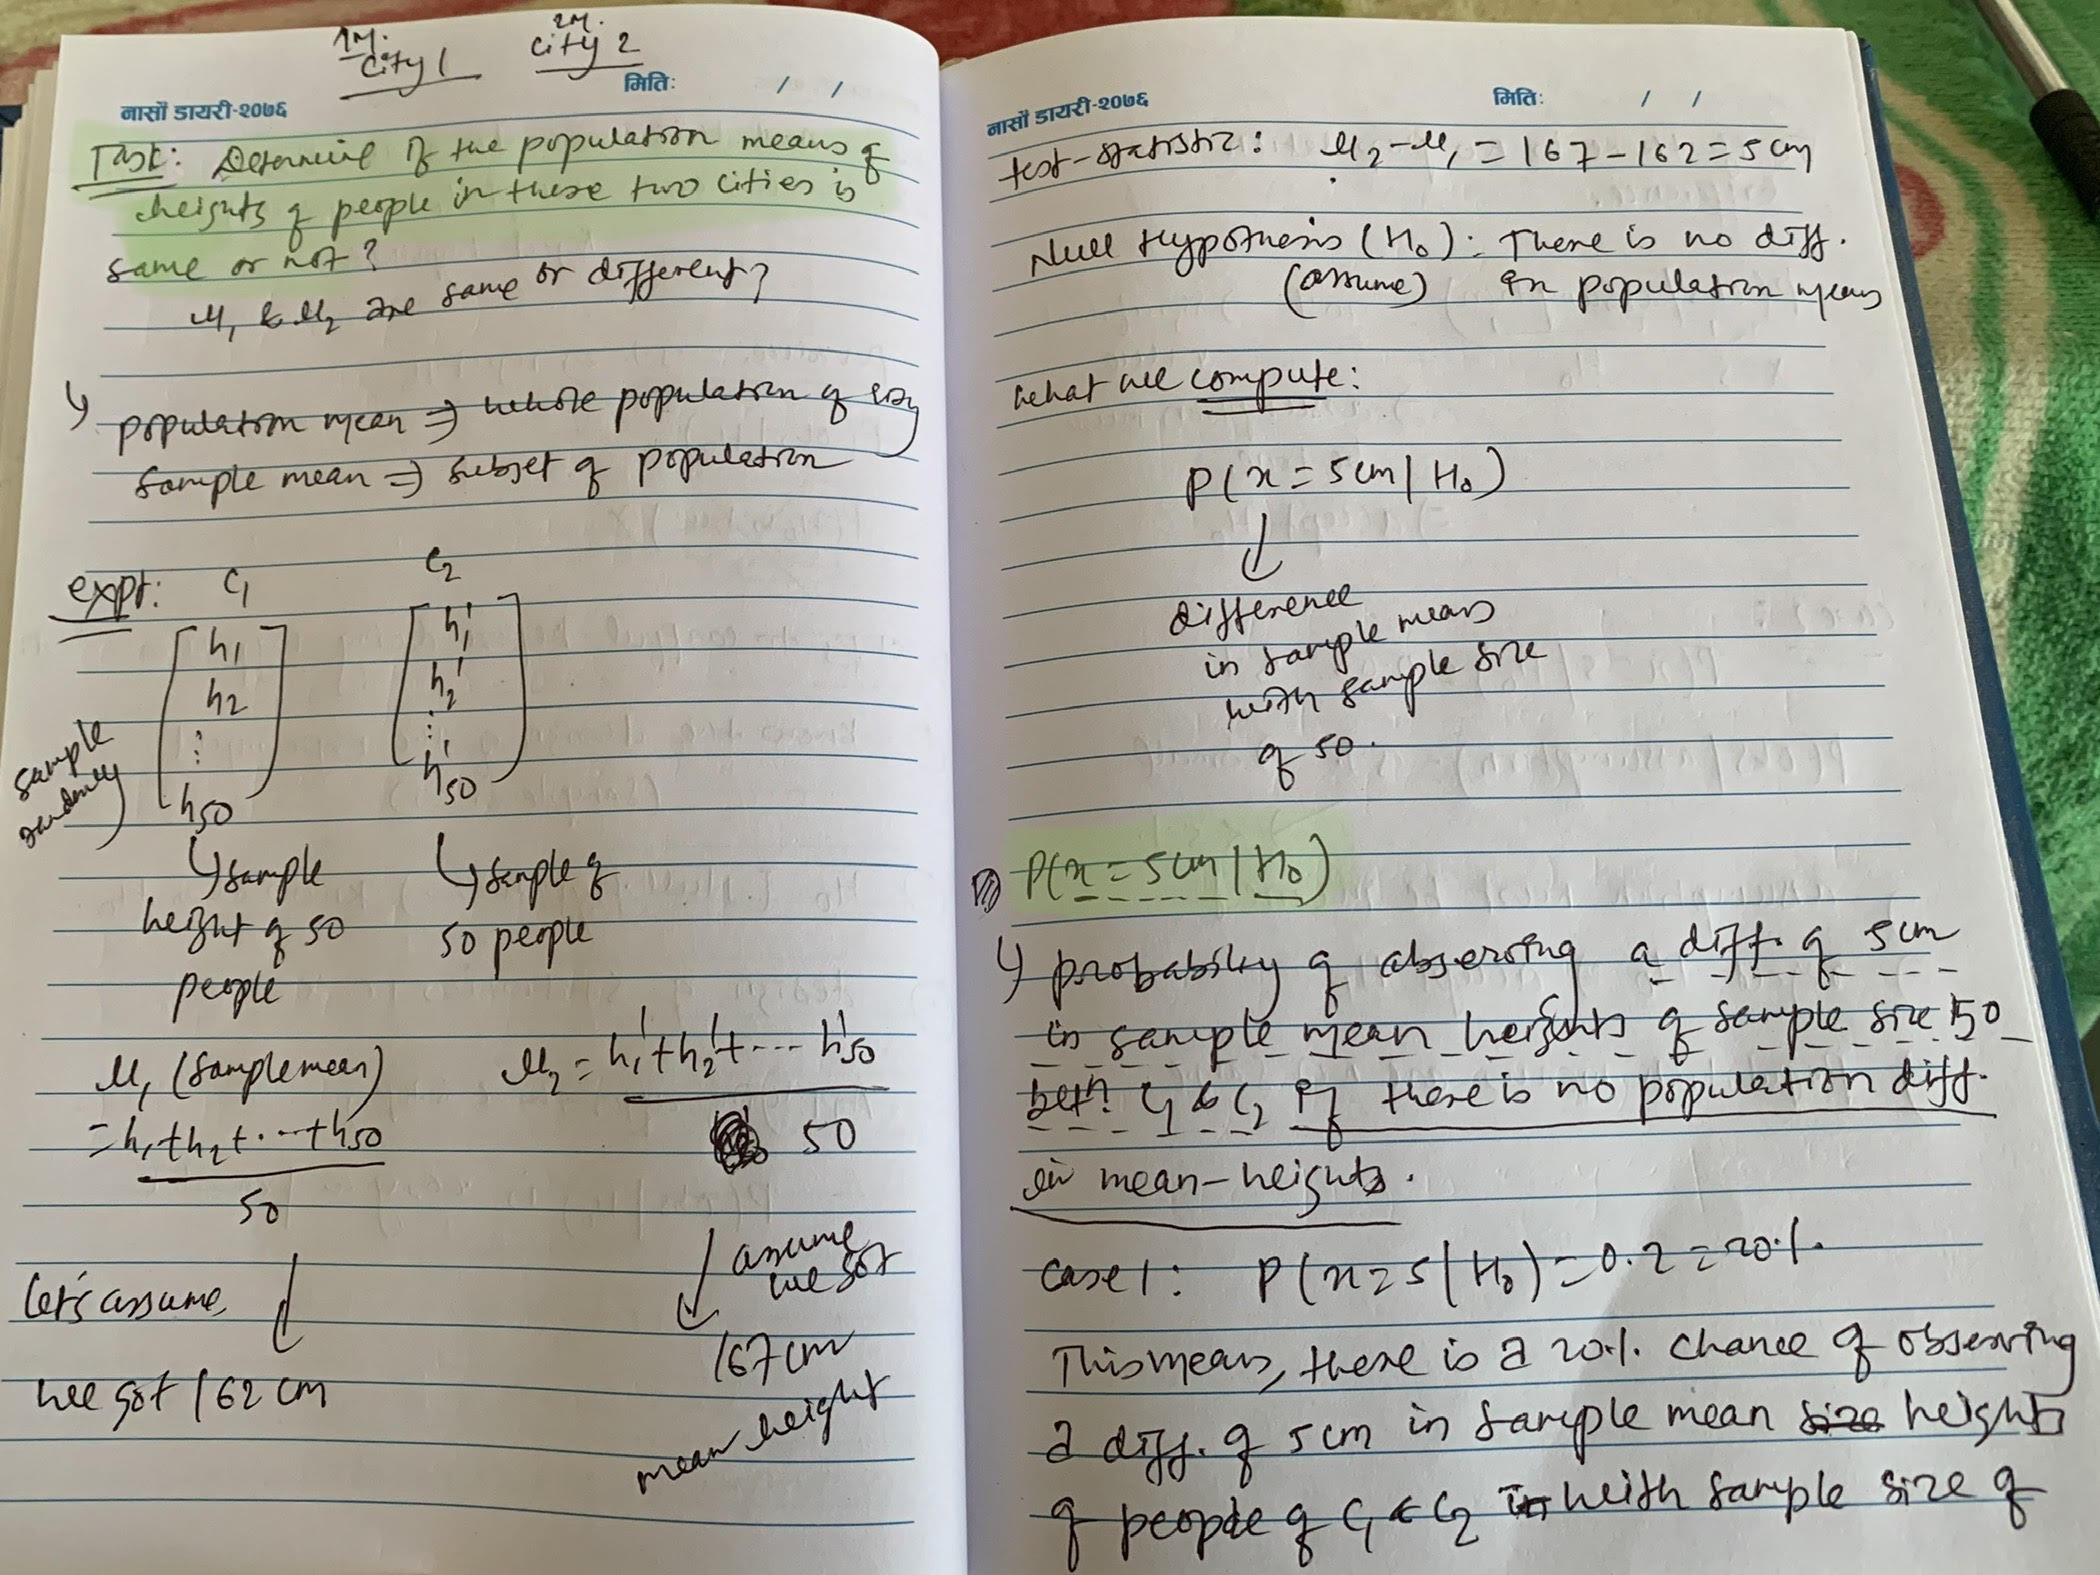 1M. 2M.
City 1 City 2
नासों डायरी-२०७६ मितिः / /
Task: Determine if the population means of
heights of people in these two cities is
same or not?
μ₁ & μ₂ are same or different?
↳ population mean ⇒ whole population of city
sample mean ⇒ subset of population
expt: C₁ C₂
h₁ h₁'
h₂ h₂'
⋮ ⋮
h₅₀ h'₅₀
sample
randomly
↳ sample ↳ sample of
height of 50 50 people
people
μ₁ (sample mean) μ₂ = h₁' + h₂' + ... h'₅₀
= h₁ + h₂ + ... + h₅₀ 50
50
let's assume assume
we got
we got 162 cm 167 cm
mean height
नासों डायरी-२०७६ मितिः / /
test-statistic: μ₂ - μ₁ = 167 - 162 = 5 cm
Null Hypothesis (H₀): There is no diff.
(assume) in population means
what we compute:
P(x = 5cm | H₀)
↓
difference
in sample means
with sample size
of 50.
P(x = 5cm | H₀)
↳ probability of observing a diff. of 5 cm
in sample mean heights of sample size 50
betⁿ C₁ & C₂ if there is no population diff.
in mean-heights.
case 1: P(x = 5 | H₀) = 0.2 = 20%.
This means, there is a 20%. chance of observing
a diff. of 5 cm in sample mean size heights
of people of C₁ & C₂ in with sample size of